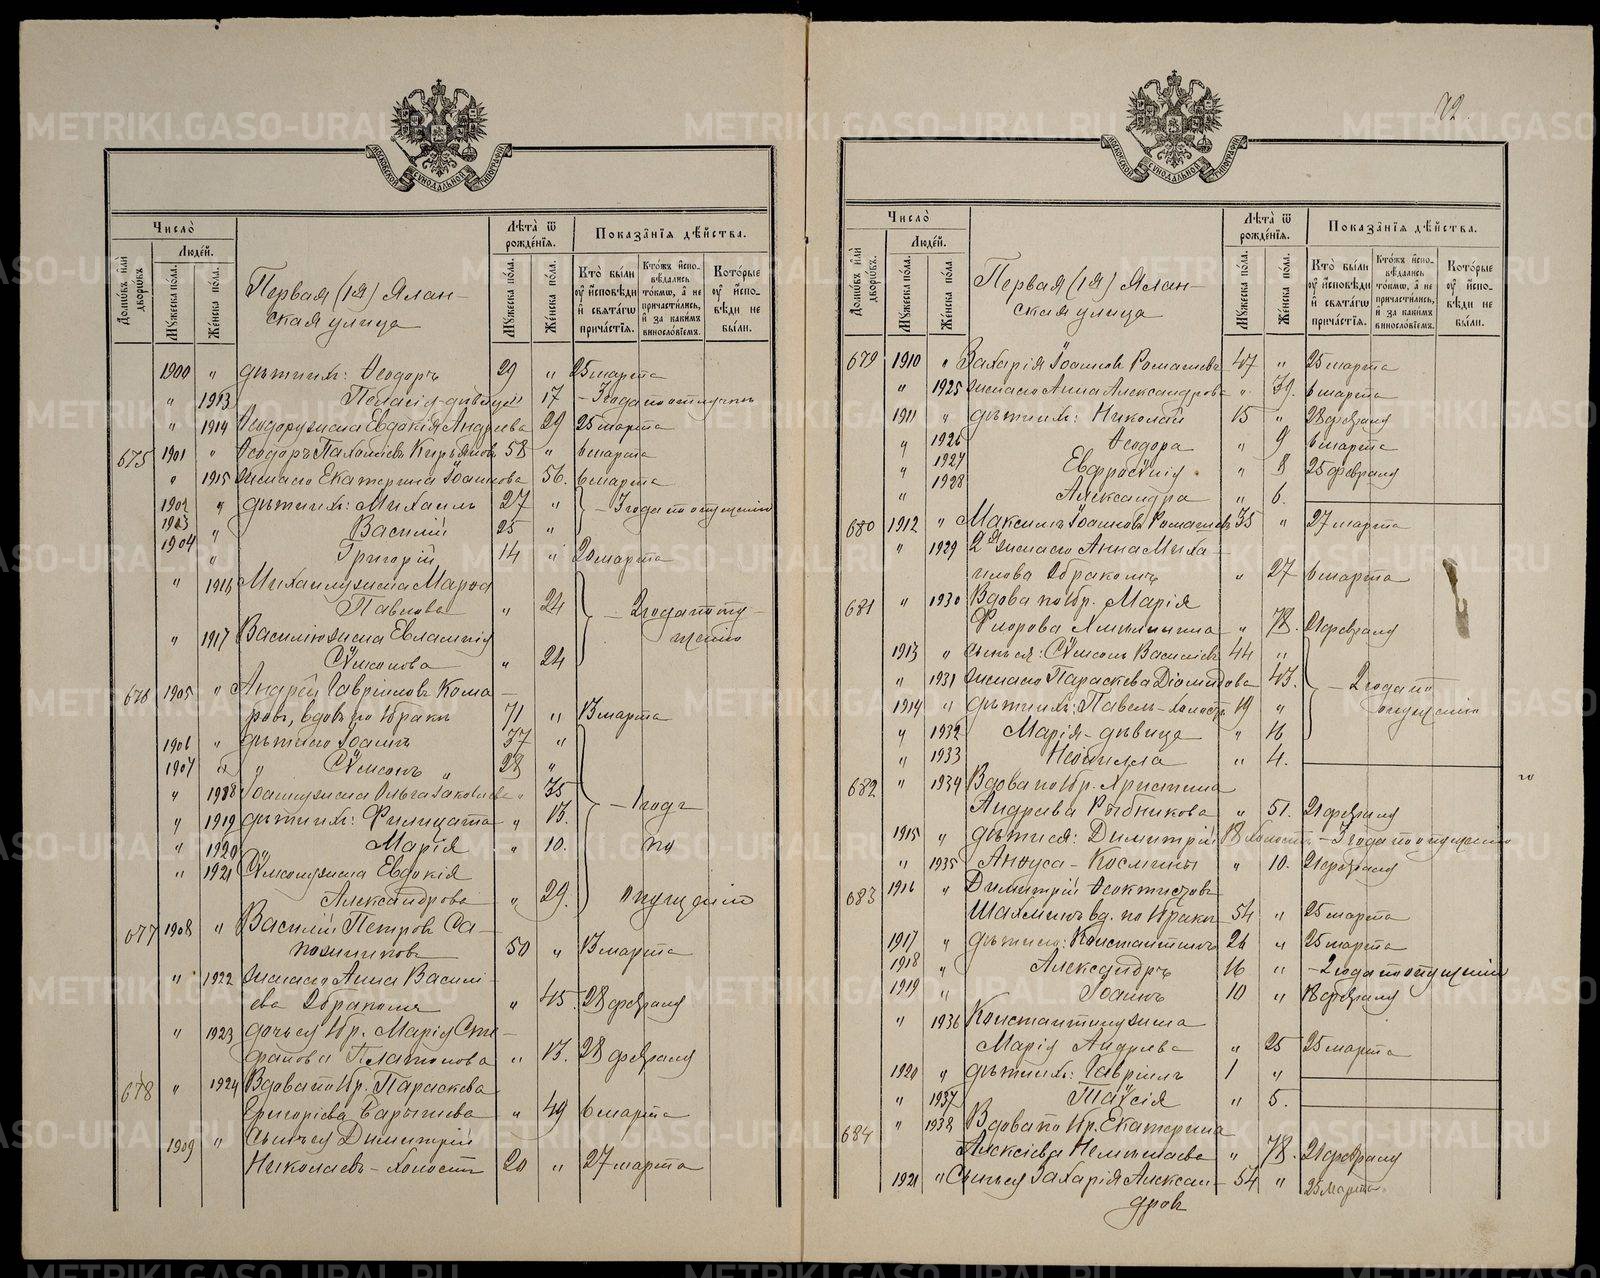 МОСКОВСКОЙ СѴНОДАЛЬНОЙ ТИПОГРАФІИ
Число̀
Домѡ́въ и҆лѝ дворѡ́въ.
Люде́й.
Мꙋ́жеска по́ла.
Же́нска по́ла.
Первая (1я) Ялан-
ская улица
Лѣ́та ѿ рожде́нїѧ.
Мꙋ́жеска по́ла.
Же́нска по́ла.
Показа̂нїѧ дѣ́йства.
Кто̀ бы́ли ᲂу҆ и҆сповѣ́ди и҆ свѧта́гѡ прича́стїѧ.
Кто́жъ и҆спо-вѣ́дались то́кмѡ, а҆ не причасти́лись, и҆ за каки́мъ виносло́вїемъ.
Кото́рые ᲂу҆ и҆спо-вѣ́ди не бы́ли.
1900 " дѣти ихъ: Ѳеодоръ 29 " 25 марта
" 1913 Пелагія-дѣвица 17 - 3 года по отлучкѣ
" 1914 Ѳеодору жена Евдокія Андреева 29 25 марта
675 1901 " Ѳеодоръ Пахомiевъ Кирьяновъ 58 " 6 марта
" 1915 жена его Екатерина Іоаннова 56. 6 марта
1902 " дѣти ихъ: Михаилъ 27 " - 3 года по опущенію
1903 " Василій 25 "
1904 " Григорій 14 " 20 марта
" 1916 Михаилу жена Марѳа
Павлова " 24 - 2 года по опу-
щенію
" 1917 Василію жена Евлампія
Сѵмеонова " 24
676 1905 " Андрей Гавріиловъ Кома-
ровъ, вдовъ по 1 бракѣ 71 " 13 марта
1906 " дѣти его Іоаннъ 37 "
1907 " " Сѵмеонъ " 28 "
" 1918 Іоанну жена Ольга Іаковлева " 35 - 1 годъ
" 1919 дѣти ихъ: Филицата " 13.
" 1920 Марія " 10. по
" 1921 Сѵмеону жена Евдокія
Александрова " 29. опущенію
677 1908 " Василій Петровъ Са-
пожниковъ 50 " 13 марта
" 1922 жена его Анна Василі-
ева 2 бракомъ " 45 28 февраля
" 1923 дочь ея 1 бр. Марія Сте-
фанова Платонова " 13. 28 февраля
678 " 1924 Вдова по 1 бр. Параскева
Григоріева " 49 6 марта
1909 " Сынъ ея Димитрій
Николаевъ - холостъ 20 " 27 марта
72.
МОСКОВСКОЙ СѴНОДАЛЬНОЙ ТИПОГРАФІИ
Число̀
Домѡ́въ и҆лѝ дворѡ́въ.
Люде́й.
Мꙋ́жеска по́ла.
Же́нска по́ла.
Первая (1я) Ялан-
ская улица
Лѣ́та ѿ рожде́нїѧ.
Мꙋ́жеска по́ла.
Же́нска по́ла.
Показа̂нїѧ дѣ́йства.
Кто̀ бы́ли ᲂу҆ и҆сповѣ́ди и҆ свѧта́гѡ прича́стїѧ.
Кто́жъ и҆спо-вѣ́дались то́кмѡ, а҆ не причасти́лись, и҆ за каки́мъ виносло́вїемъ.
Кото́рые ᲂу҆ и҆спо-вѣ́ди не бы́ли.
679 1910 " Захарія Іоанновъ Ромашевъ 47 " 25 марта
" 1925 жена его Анна Александрова " 39. 6 марта
1911 " дѣти ихъ: Николай 15 " 28 февраля
" 1926 Ѳеодора " 9 6 марта
" 1927 Евфросинія " 8 25 февраля
" 1928 Александра " 6.
680 1912 " Максимъ Іоанновъ Ромашевъ 35 " 27 марта
" 1929 2я жена его Анна Миха-
илова 2 бракомъ " 27 6 марта
681 " 1930 Вдова по 1 бр. Марія
Флорова " 78. 21 февраля
1913 " сынъ ея: Сѵмеонъ Василіевъ 44 "
" 1931 жена его Параскева Діомидова 43. - 2 года по
1914 " дѣти ихъ: Павелъ - холостъ 19 " опущенію
" 1932 Марія - дѣвица " 16
" 1933 Неонилла " 4.
682 " 1934 Вдова по 1 бр. Христина
Андреева Рыбникова " 51. 21 февраля
1915 " дѣти ея: Димитрій 18 холостъ - 3 года по опущенію
" 1935 Анфуса - Космины " 10. 21 февраля
683 1916 " Димитрій Ѳеоктистовъ
Шахминъ вд. по 1 бракѣ 54 " 25 марта
1917 " дѣти его: Константинъ 26 " 25 марта
1918 " Александръ 16 " - 2 года по опущенію
1919 " Іоаннъ 10 " 18 февраля
" 1936 Константину жена
Марія Андреева " 25 25 марта
1920 " дѣти ихъ: Гавріилъ 1 "
" 1937 Таисія " 5.
684 " 1938 Вдова по 1 бр. Екатерина
Алексіева " 78. 21 февраля
1921 " Сынъ ея Захарія Алексан-
дровъ 54 " 25 марта.
METRIKI.GASO-URAL.RU